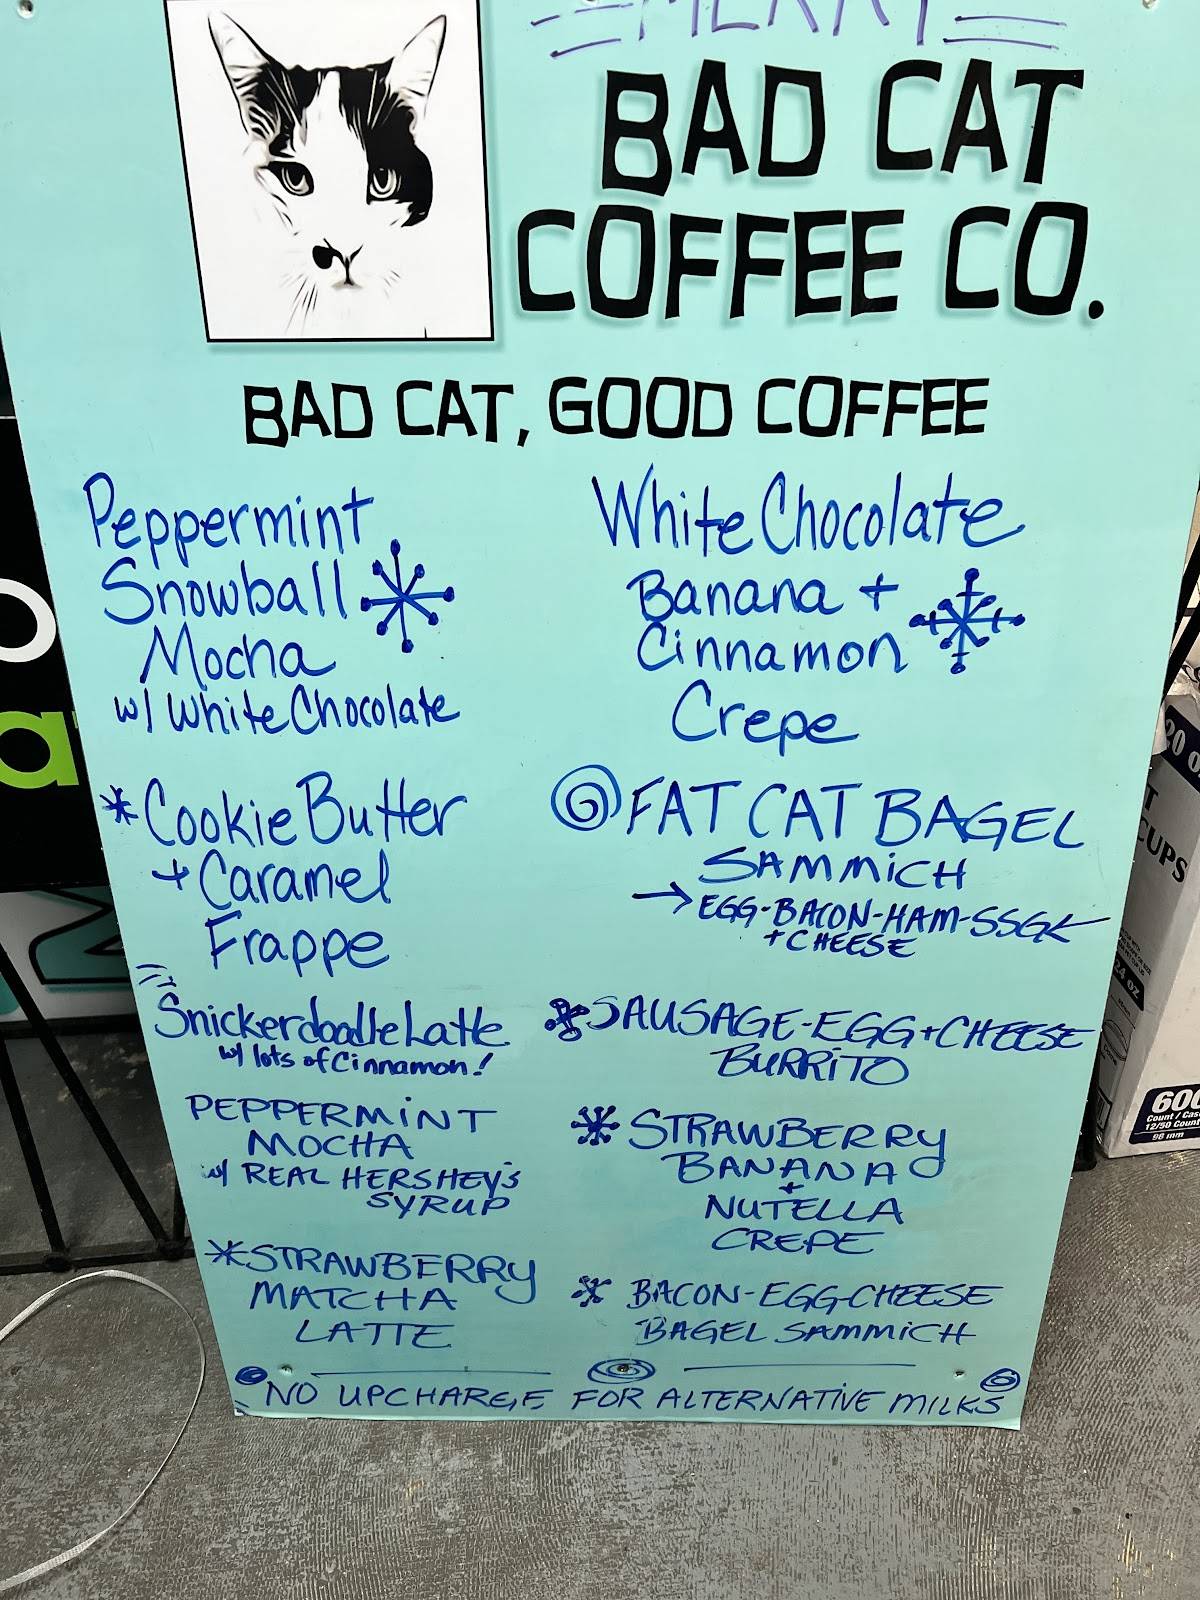 MERRY
BAD CAT
COFFEE CO.
BAD CAT, GOOD COFFEE
Peppermint
Snowball
Mocha
w/ White Chocolate
Cookie Butter
+ Caramel
Frappe
Snickerdoodle Latte
w/ lots of Cinnamon!
PEPPERMINT
MOCHA
w/ REAL HERSHEY'S
SYRUP
STRAWBERRY
MATCHA
LATTE
White Chocolate
Banana +
Cinnamon
Crepe
FAT CAT BAGEL
SAMMICH
→ EGG-BACON-HAM-SSGE
+ CHEESE
SAUSAGE-EGG+CHEESE
BURRITO
STRAWBERRY
BANANA
+
NUTELLA
CREPE
BACON-EGG-CHEESE
BAGEL SAMMICH
NO UPCHARGE FOR ALTERNATIVE MILKS
20 O
T
CUPS
24 OZ
600
Count / Cas
12/50 Count
98 mm